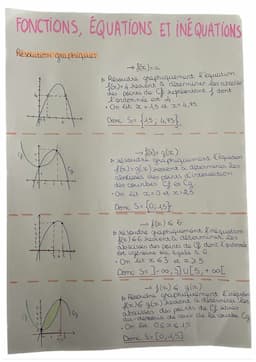 FONCTIONS, ÉQUATIONS ET INÉQUATIONS
Résolution graphique
→ f(x)=a
Résoudre graphiquement l'équation
f(x)=4 revient à déterminer les abscisses
des points de Cf représentant f dont
l'ordonnée est 4
• On lit x = 1,5 et x = 4,75
Donc S = {1,5 ; 4,75}
→ f(x) = g(x)
Résoudre graphiquement l'équation
f(x)=g(x) revient à déterminer les
abscisses des points d'intersection
des courbes Cf et Cg
• On lit x = 0 et x = 2,5
Donc S= {0; 1,5}
→ f(x) ≤ b
Résoudre graphiquement l'inéquation
f(x) ≤ 6 revient à déterminer les
abscisses des points de Cf dont l'ordonnée
est inférieure ou égale à 6
• On lit x ≤ 3 et x ≥ 5
Donc S = ]-∞, 3] ∪ [5, +∞[
→ f(x) ≤ g(x)
Résoudre graphiquement l'inéquation
f(x) ≤ g(x) revient à déterminer les
abscisses des points de Cf situés
au-dessous de ceux de la courbe Cg
• On lit 0 ≤ x ≤ 1,5
Donc S= [0, 1,5]